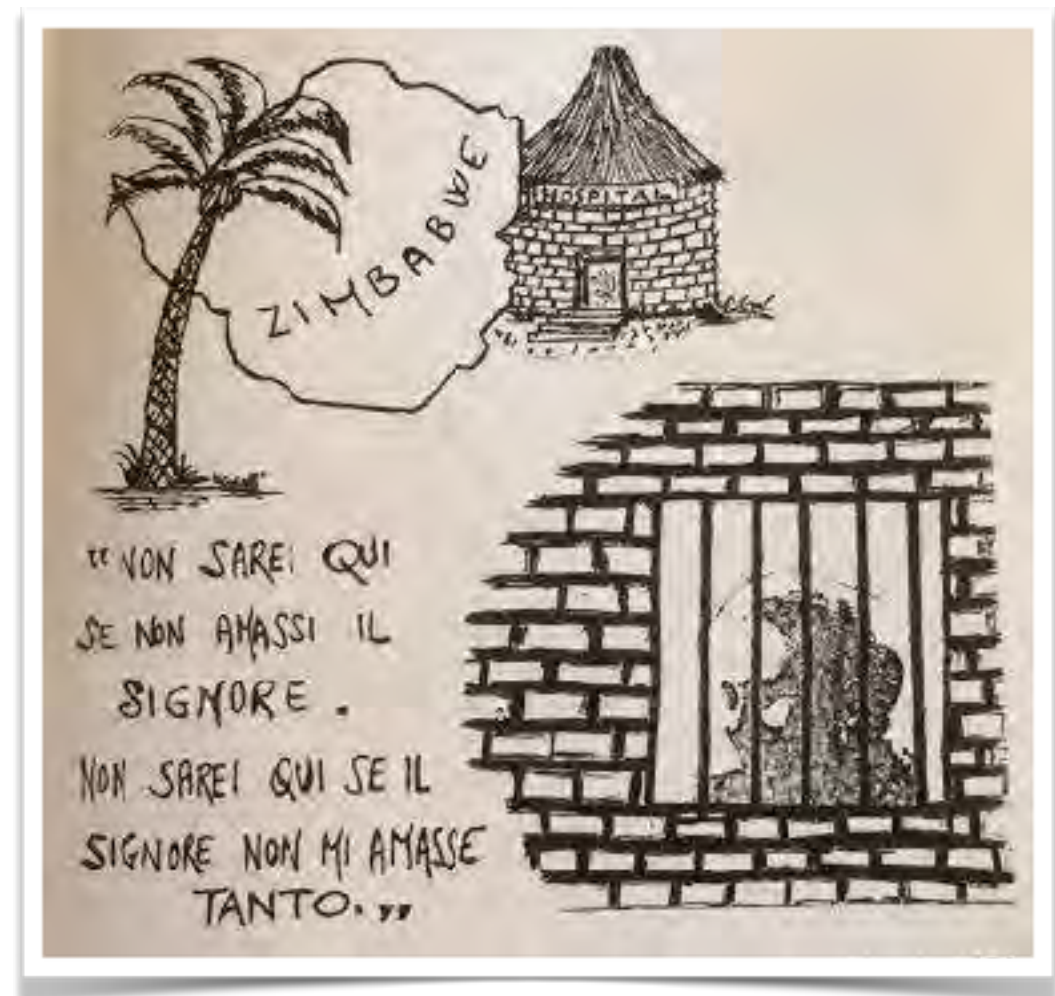 ZIMBABWE
HOSPITAL
“NON SAREI QUI
SE NON AMASSI IL
SIGNORE.
NON SAREI QUI SE IL
SIGNORE NON MI AMASSE
TANTO.”